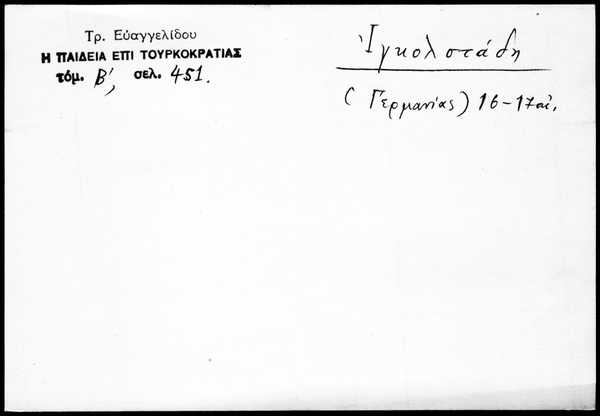 Τρ. Εὐαγγελίδου
Η ΠΑΙΔΕΙΑ ΕΠΙ ΤΟΥΡΚΟΚΡΑΤΙΑΣ
τόμ. Β΄, σελ. 451.
Ἰγκολστάδη
(Γερμανίας) 16-17 αἰ.